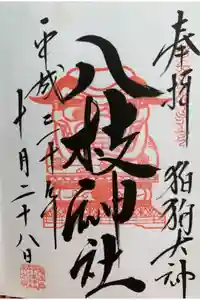 奉拝
狛狗大神
八枝神社
平成三十年
十月二十八日